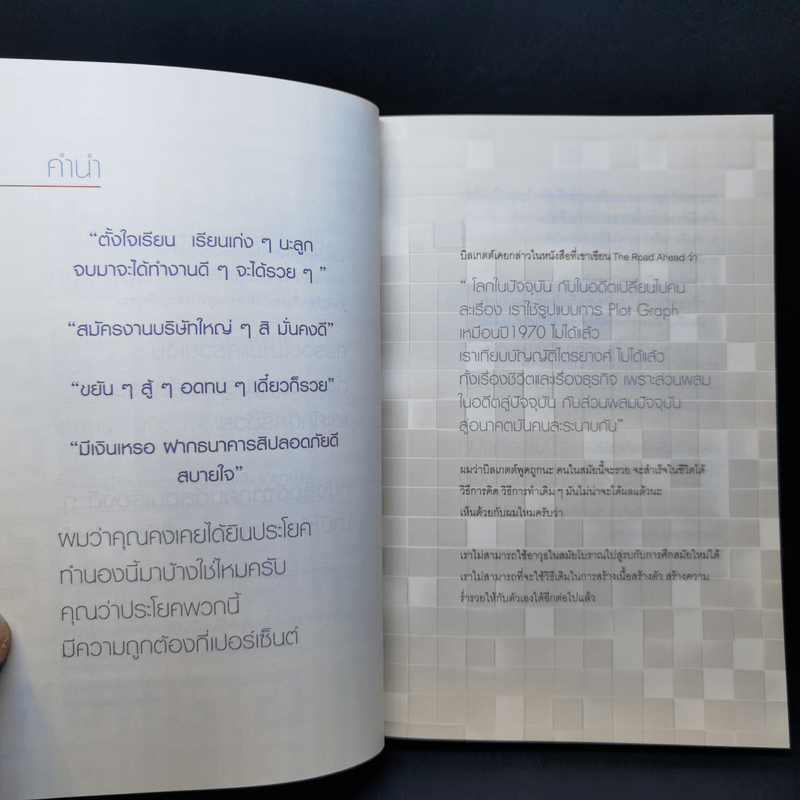 คำนำ
“ตั้งใจเรียน เรียนเก่ง ๆ นะลูก
จบมาจะได้ทำงานดี ๆ จะได้รวย ๆ ”
“สมัครงานบริษัทใหญ่ ๆ สิ มั่นคงดี”
“ขยัน ๆ สู้ ๆ อดทน ๆ เดี๋ยวก็รวย”
“มีเงินเหรอ ฝากธนาคารสิปลอดภัยดี
สบายใจ”
ผมว่าคุณคงเคยได้ยินประโยค
ทำนองนี้มาบ้างใช่ไหมครับ
คุณว่าประโยคพวกนี้
มีความถูกต้องกี่เปอร์เซ็นต์
บิลเกตต์เคยกล่าวในหนังสือที่เขาเขียน The Road Ahead ว่า
“ โลกในปัจจุบัน กับในอดีตเปลี่ยนไปคน
ละเรื่อง เราใช้รูปแบบการ Plot Graph
เหมือนปี1970 ไม่ได้แล้ว
เราเทียบบัญญัติไตรยางศ์ ไม่ได้แล้ว
ทั้งเรื่องชีวิตและเรื่องธุรกิจ เพราะส่วนผสม
ในอดีตสู่ปัจจุบัน กับส่วนผสมปัจจุบัน
สู่อนาคตมันคนละระนาบกัน”
ผมว่าบิลเกตต์พูดถูกนะ คนในสมัยนี้จะรวย จะสำเร็จในชีวิตได้
วิธีการคิด วิธีการทำเดิม ๆ มันไม่น่าจะได้ผลแล้วนะ
เห็นด้วยกับผมไหมครับว่า
เราไม่สามารถใช้อาวุธในสมัยโบราณไปสู่รบกับการศึกสมัยใหม่ได้
เราไม่สามารถที่จะใช้วิธีเดิมในการสร้างเนื้อสร้างตัว สร้างความ
ร่ำรวยให้กับตัวเองได้อีกต่อไปแล้ว